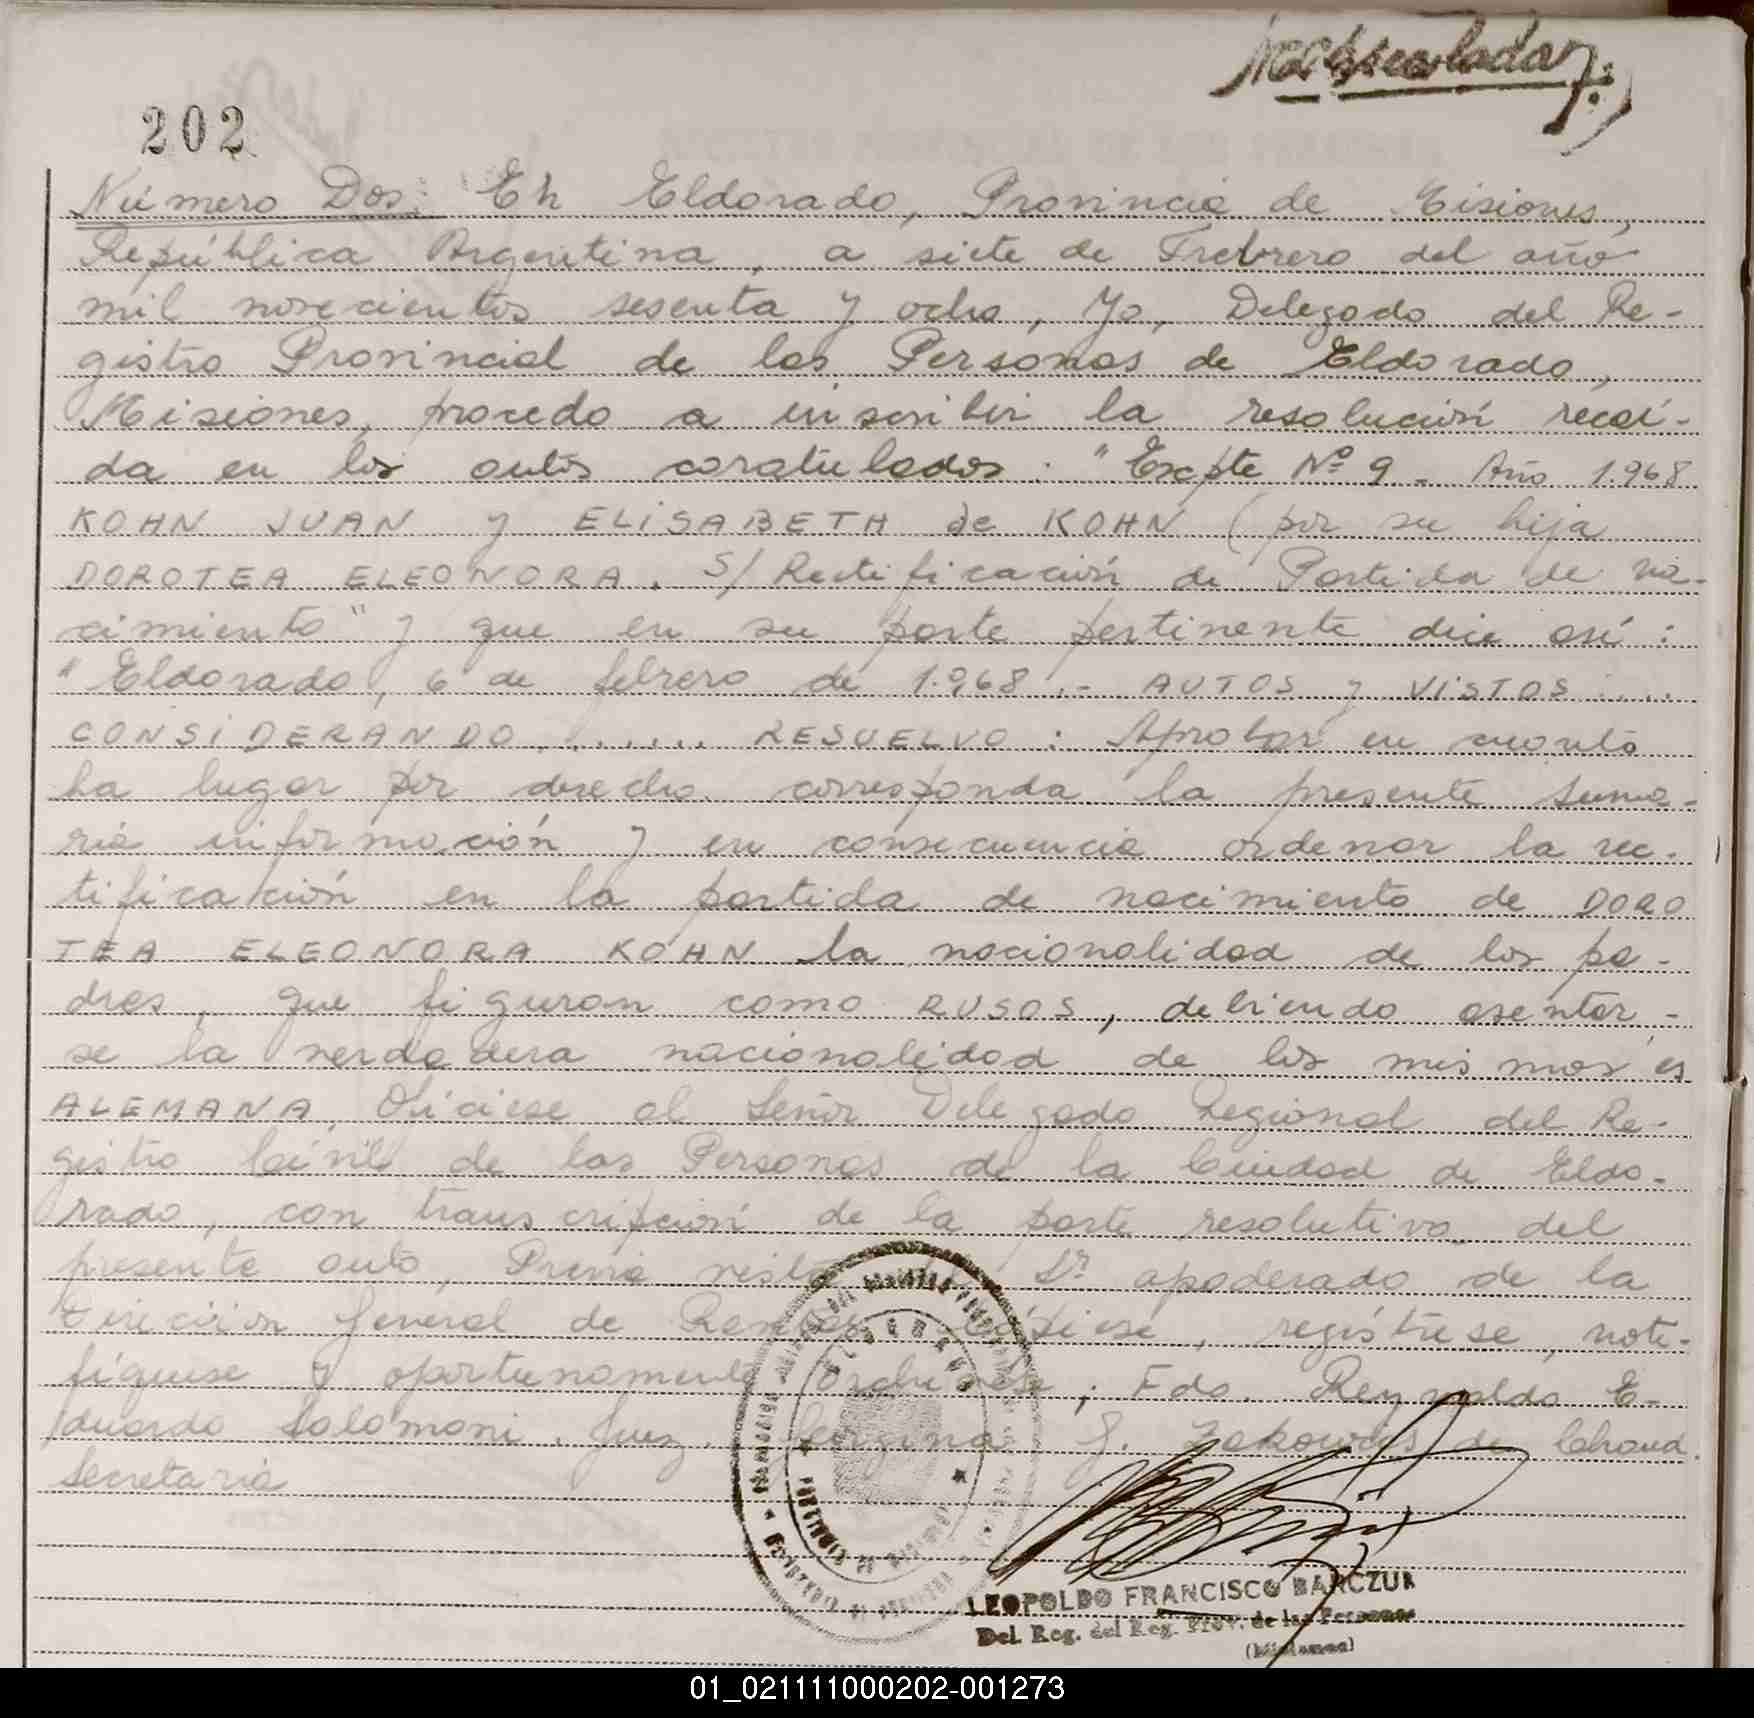 202
Número Dos: En Eldorado, Provincia de Misiones,
República Argentina, a siete de Frebrero del año
mil novecientos sesenta y ocho, Yo, Delegado del Re-
gistro Provincial de las Personas de Eldorado,
Misiones, procedo a inscribir la resolución recaí-
da en los autos caratulados: "Expte Nº 9 - Año 1.968
KOHN JUAN y ELISABETH de KOHN (por su hija
DOROTEA ELEONORA. S/ Rectificación de Partida de na-
cimiento" y que en su parte pertinente dice así:
"Eldorado, 6 de febrero de 1.968.- AUTOS y VISTOS.....
CONSIDERANDO....... RESUELVO: Aprobar en cuanto
ha lugar por derecho corresponda la presente suma-
ria información y en consecuencia ordenar la rec-
tificación en la partida de nacimiento de DORO
TEA ELEONORA KOHN la nacionalidad de los pa-
dres, que figuran como RUSOS, debiendo asentar-
se la verdadera nacionalidad de los mismos es
ALEMANA, Ofíciese al Señor Delegado Regional del Re-
gistro Civil de las Personas de la Ciudad de Eldo-
rado, con transcripción de la parte resolutiva del
presente auto, Previa vista Sr apoderado de la
Dirección General de Rentas, regístrese, noti-
fíquese y oportunamente archívese; Fdo. Reynaldo E-
duardo Salomoni. Juez. Georgina G. de
Secretaria
ELDORADO
PROVINCIA DE MISIONES
LEOPOLDO FRANCISCO BARCZUK
Del. Reg. del Reg. Prov. de las Personas
(Misiones)
01_021111000202-001273